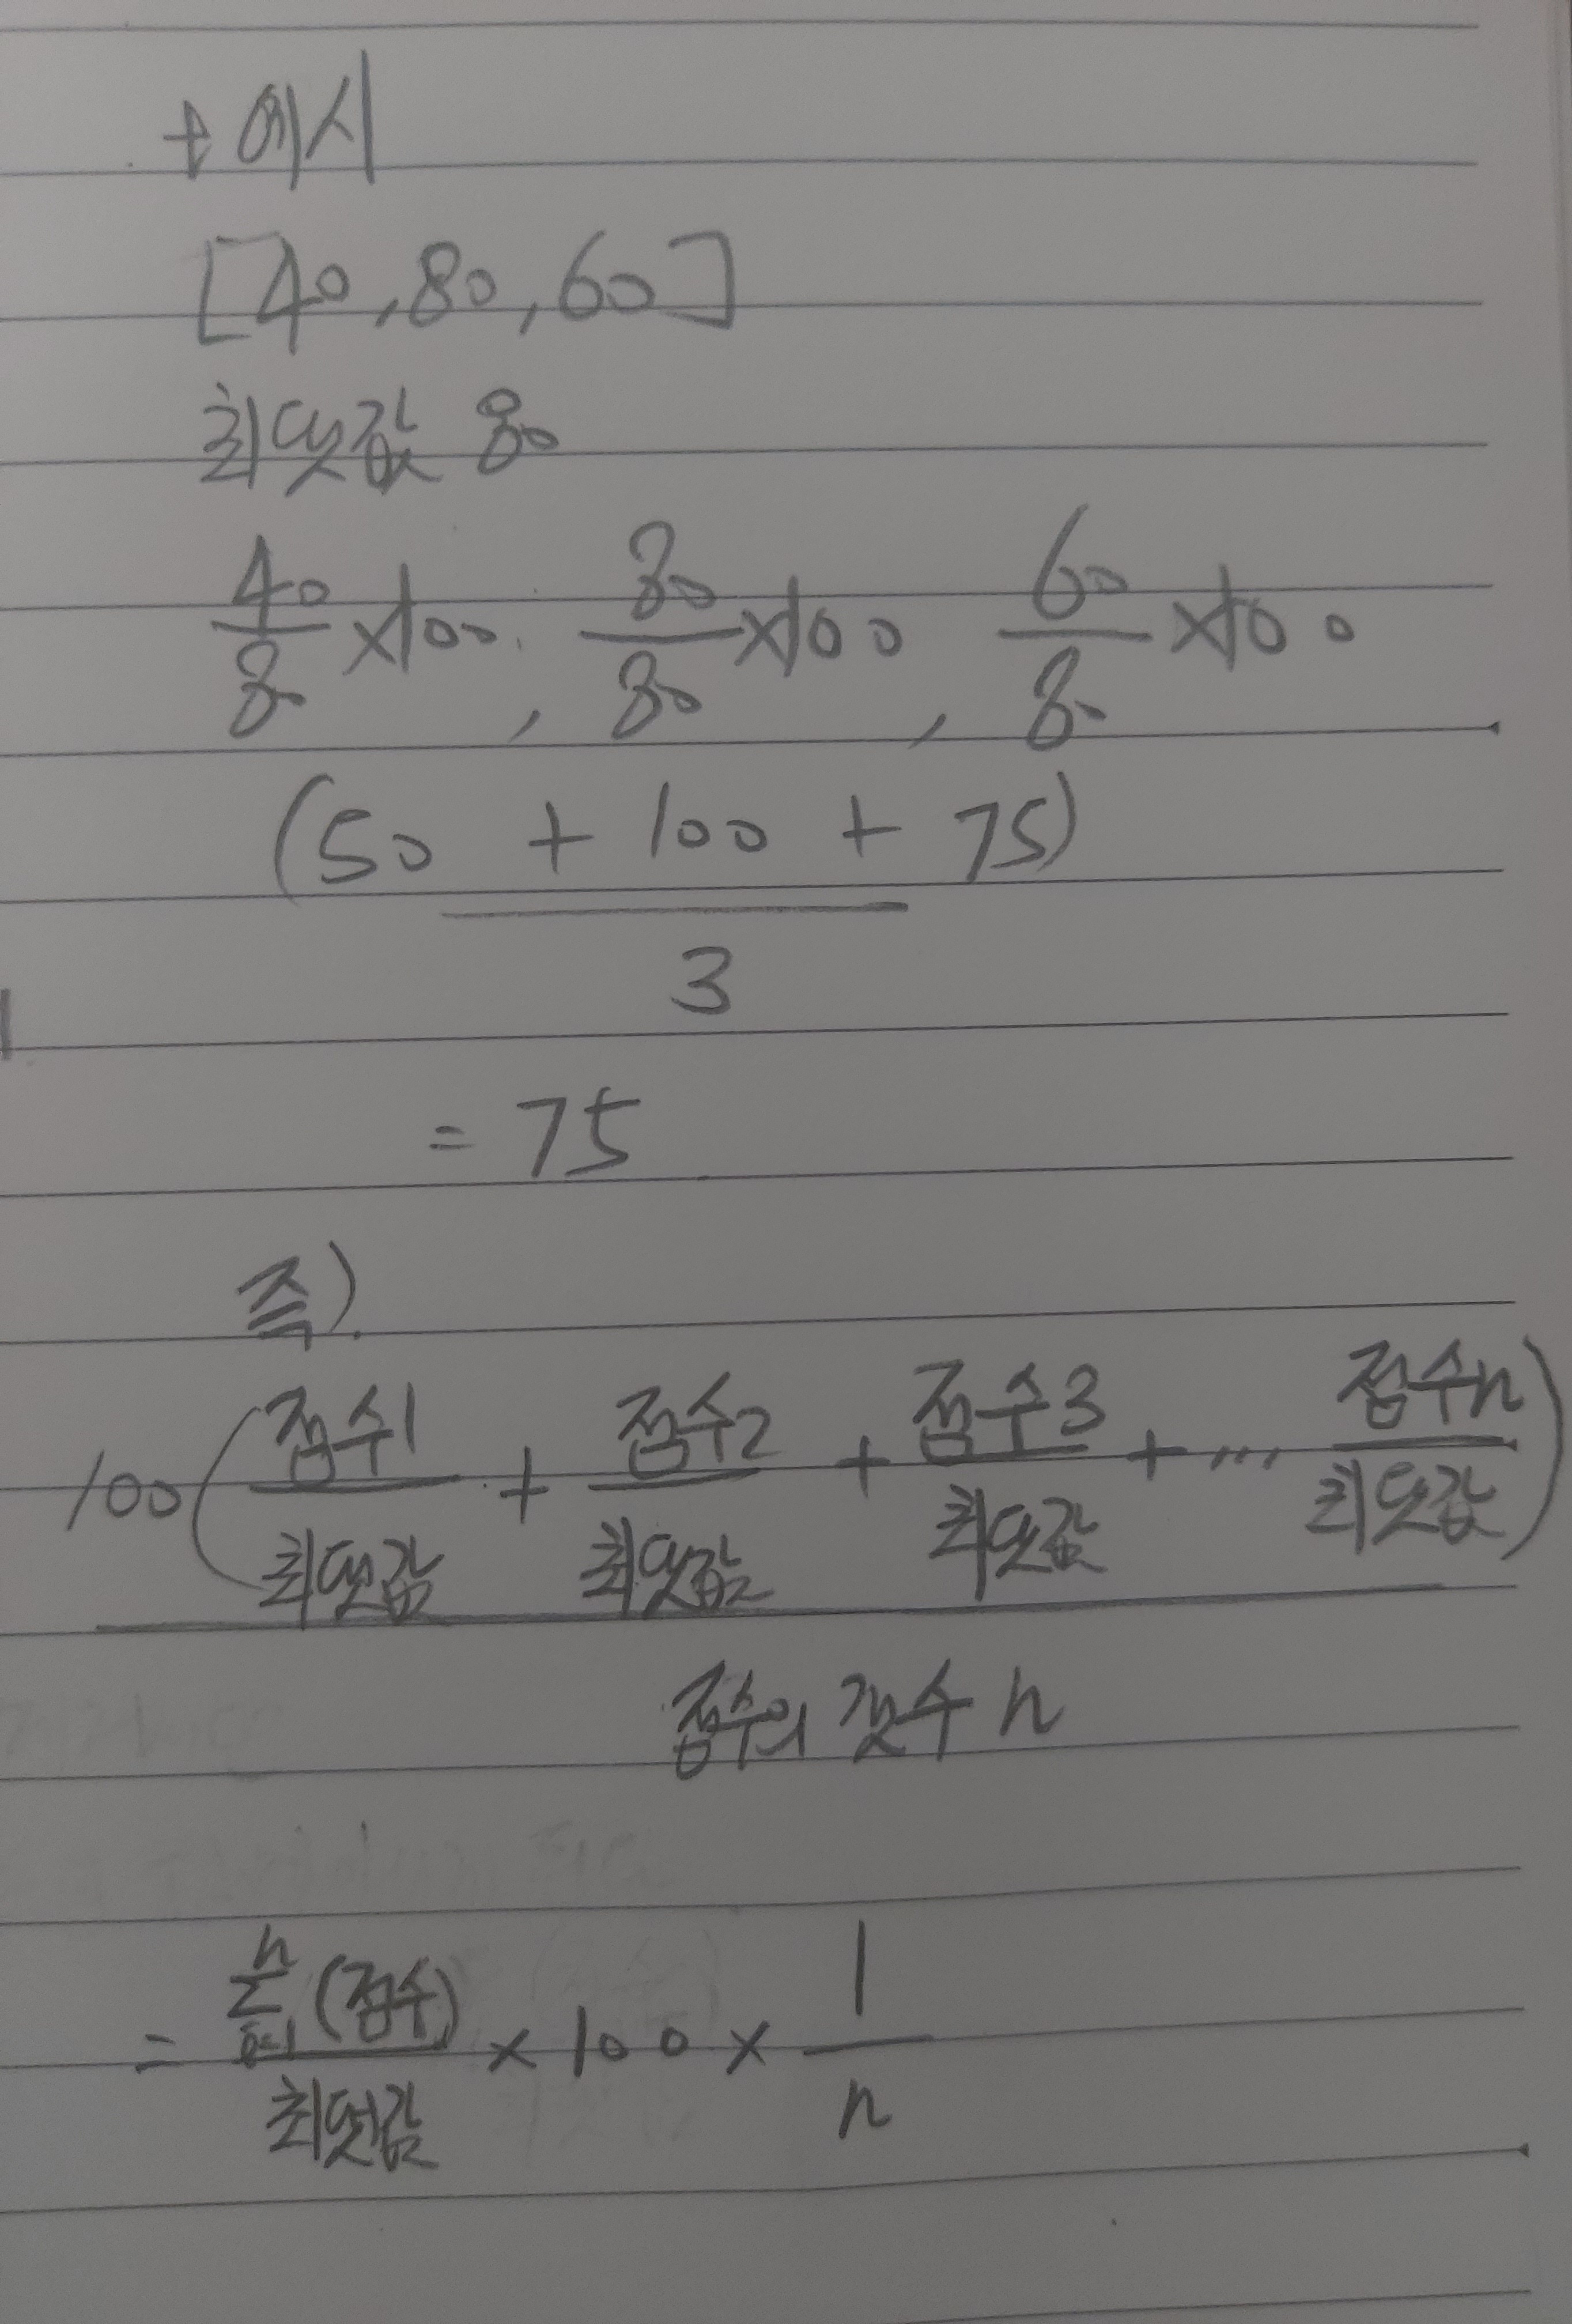 + 예시
[40, 80, 60]
최댓값 80
40/80 × 100, 80/80 × 100, 60/80 × 100
(50 + 100 + 75)
3
= 75
즉).
100(점수1/최댓값 + 점수2/최댓값 + 점수3/최댓값 + ... 점수n/최댓값)
점수의 갯수 n
= n Σ (점수)/최댓값 × 100 × 1/n